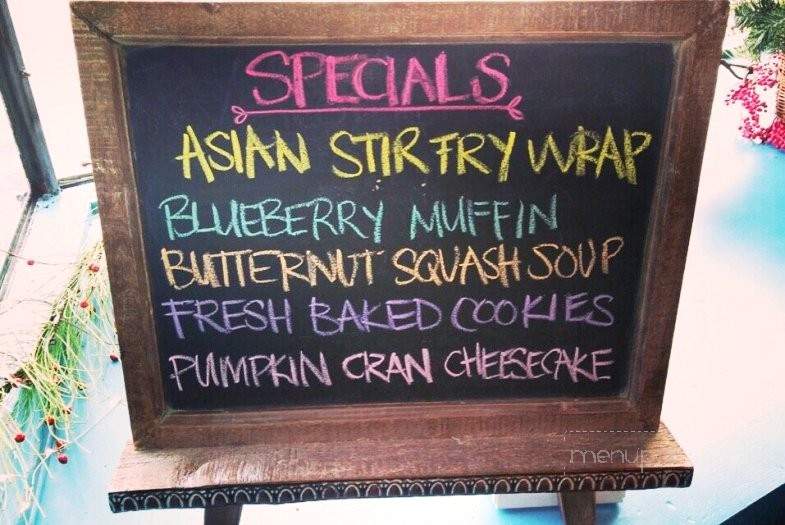 SPECIALS
ASIAN STIR FRY WRAP
BLUEBERRY MUFFIN
BUTTERNUT SQUASH SOUP
FRESH BAKED COOKIES
PUMPKIN CRAN CHEESECAKE
menup